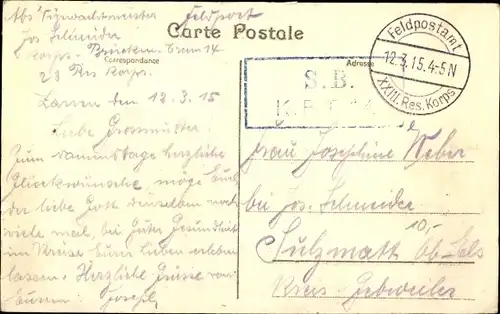 Abs: Vizewachtmeister Feldpost
Jos Schneider
Korps-Brücken-Train 14
23 Res Korps.
Carte Postale
Correspondance
Adresse
Feldpostamt
12.3.15.4-5N
XXIII. Res. Korps
S. B.
K.
den 12.3.15
Liebe Grossmutter
Zum namenstage herzliche
Glückwünsche möge Euch
der liebe Gott denselben noch
viele mal, bei Guter Gesundheit
im Kreise Eurer Lieben erleben
lassen. Herzliche Grüsse von
Eurem Joseph
Frau Josephine Weber
bei Jos. Schneider
10,-
Sulzmatt Ob-Els
Kreis Gebweiler